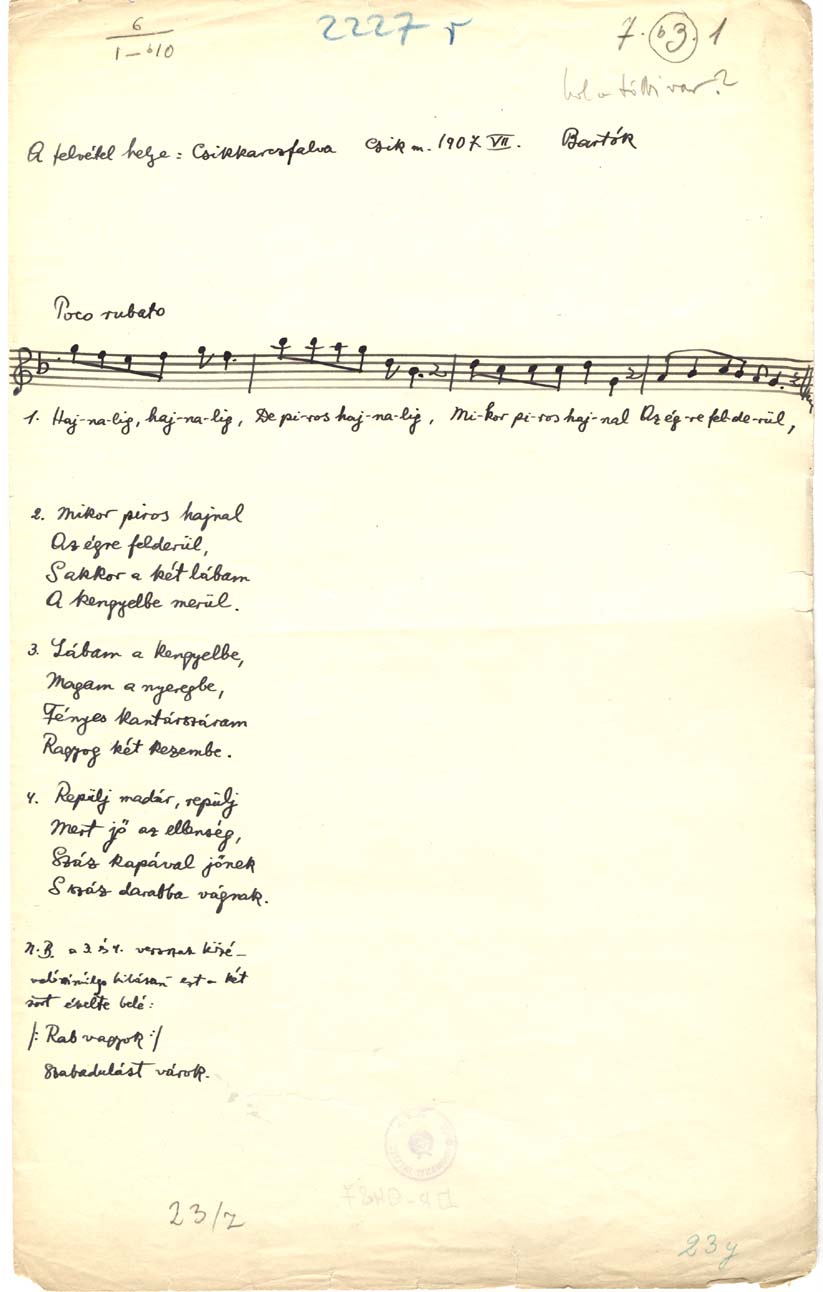 6
1 – b10
2227 r
7. b3. 1
hol a többi var.?
A felvétel helye: Csikkarczfalva Csik m. 1907. VII. Bartók
Poco rubato
1. Haj-na-lig, haj-na-lig, De pi-ros haj-na-lig, Mi-kor pi-ros haj-nal Az ég-re fel-de-rül,
2. Mikor piros hajnal
Az égre felderül,
Sakkor a két lábam
A kengyelbe merül.
3. Lábam a kengyelbe,
Magam a nyeregbe,
Fényes kantárszáram
Ragyog két kezembe.
4. Repülj madár, repülj
Mert jő az ellenség,
Száz kapával jőnek
S száz darabba vágnak.
N.B. a 3. és 4. versszak közé
valószinüleg hibásan ezt a két
sort énekelte belé:
/: Rab vagyok :/
Szabadulást várok.
23/z
23y